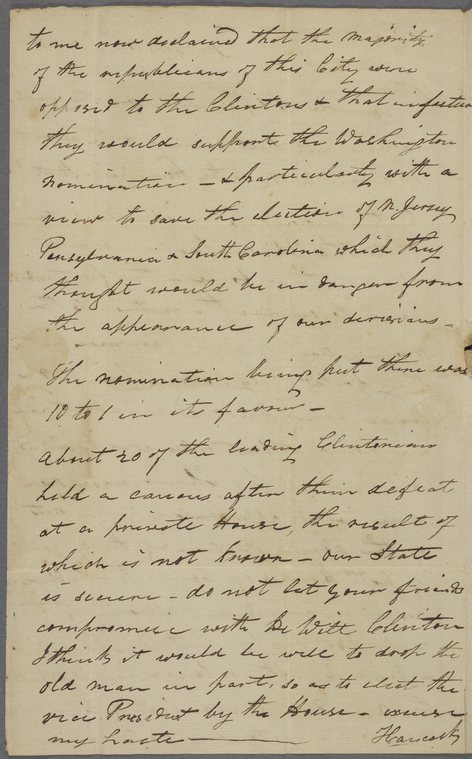 to me now declaired that the majority
of the republicans of this City were
opposed to the Clintons & that in fact
they would support the Washington
nomination - & particularly with a
view to save the election of N. Jersey
Pensylvania & South Carolina which they
thought would be in danger from
the appearance of our divisions -
The nomination being put there was
10 to 1 in its favour -
About 20 of the leading Clintonians
held a caucus after their defeat
at a private House, the result of
which is not known - our State
is secure - do not let your friends
compromise with De Witt Clinton
I think it would be well to drop the
old man in part, so as to elect the
vice President by the House - excuse
my haste -